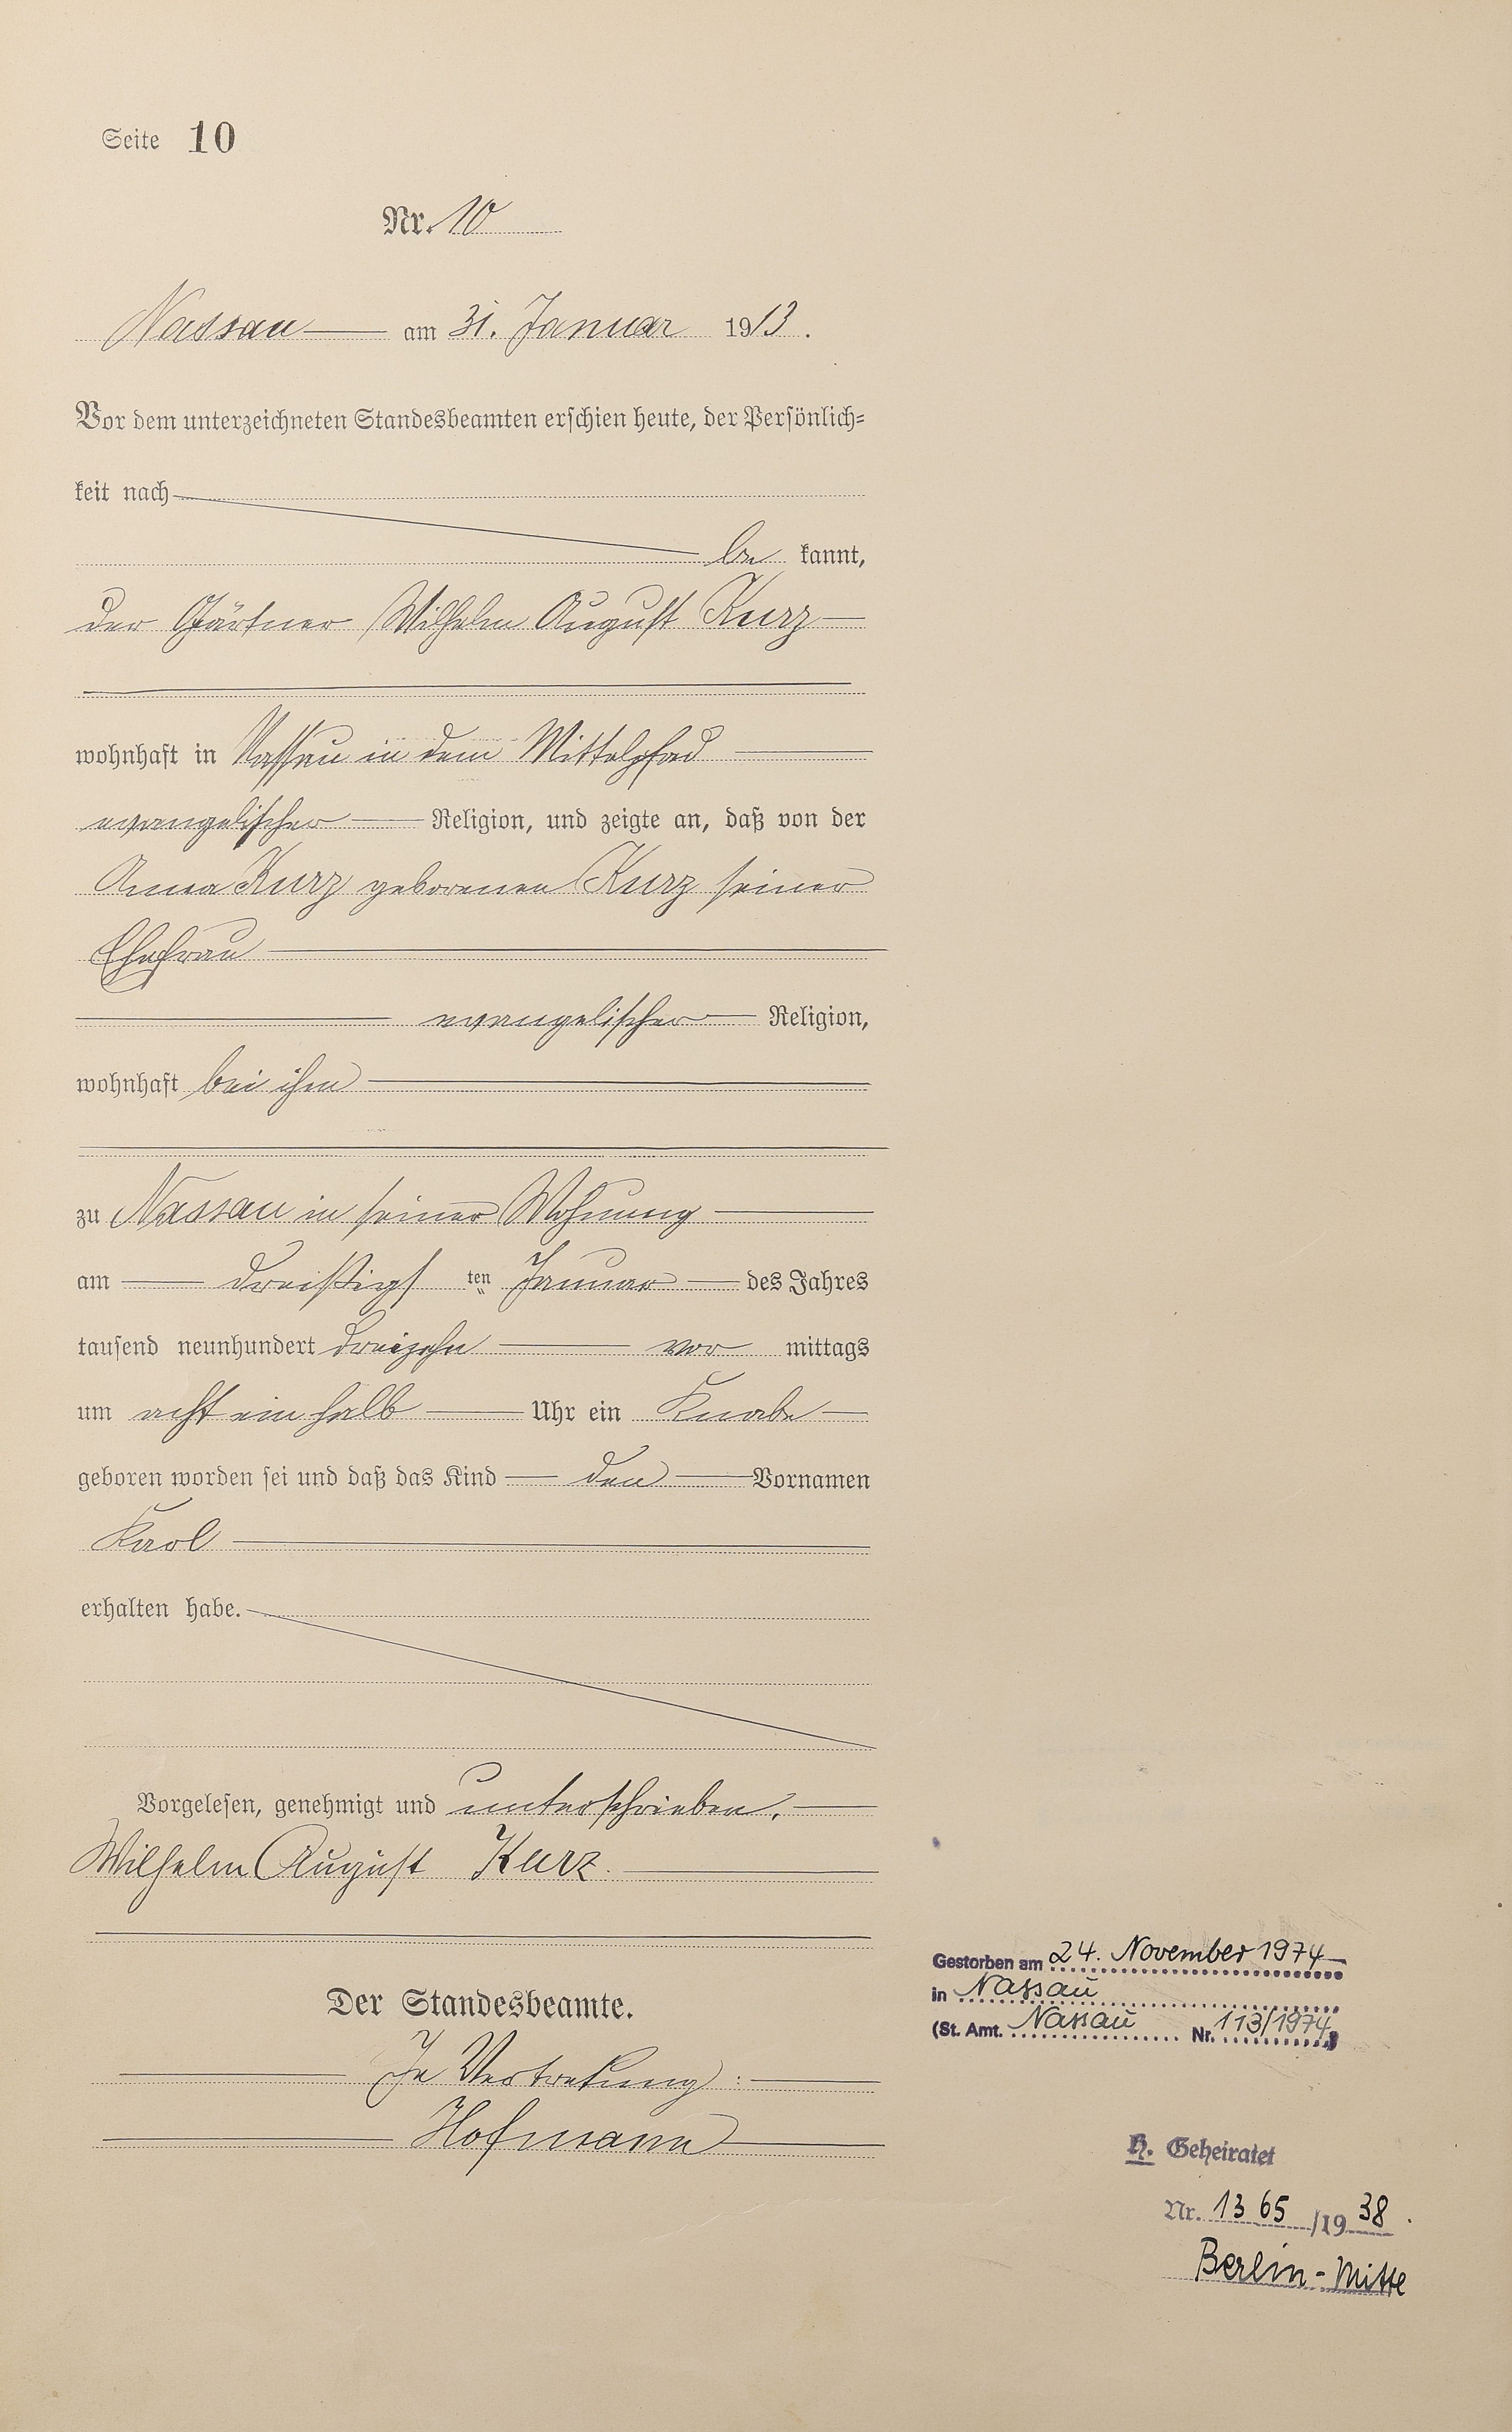 Seite 10
Nr. 10
Nassau am 31. Januar 1913.
Vor dem unterzeichneten Standesbeamten erschien heute, der Persönlich-
keit nach
be kannt,
der Gärtner Wilhelm August Kurz
wohnhaft in Nassau in dem Mittelpfad
evangelischer Religion, und zeigte an, daß von der
Anna Kurz geborenen Kurz seiner
Ehefrau
evangelischer Religion,
wohnhaft bei ihm
zu Nassau in seiner Wohnung
am dreißigs ten Januar des Jahres
tausend neunhundert dreizehn vor mittags
um acht ein halb Uhr ein Knabe
geboren worden sei und daß das Kind den Vornamen
Karl
erhalten habe.
Vorgelesen, genehmigt und unterschrieben.
Wilhelm August Kurz.
Der Standesbeamte.
In Vertretung:
Hofmann
Gestorben am 24. November 1974
in Nassau
(St. Amt. Nassau Nr. 113/1974)
H. Geheiratet
Nr. 1365/1938.
Berlin-Mitte